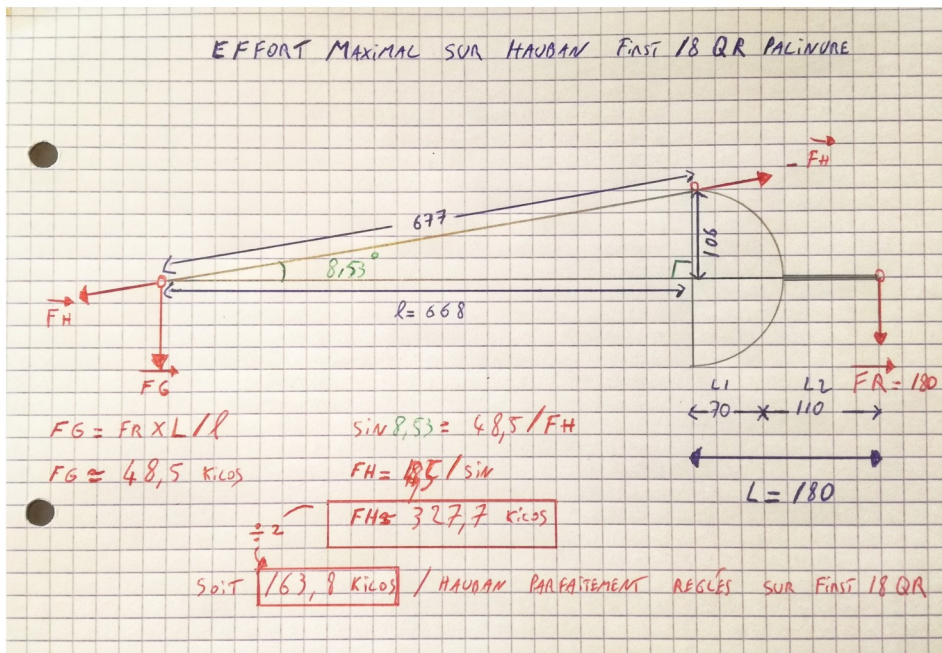 EFFORT MAXIMAL SUR HAUBAN FIRST 18 QR PALINURE
- FH
677
106
8,53°
FH
l= 668
FG
FR = 180
L1 L2
70 110
L = 180
FG = FR X L / l
FG ≈ 48,5 KILOS
sin 8,53 = 48,5 / FH
FH = 48,5 / sin
FH≈ 327,7 KILOS
÷ 2
SOIT 163,8 KILOS / HAUBAN PARFAITEMENT REGLÉS SUR FIRST 18 QR